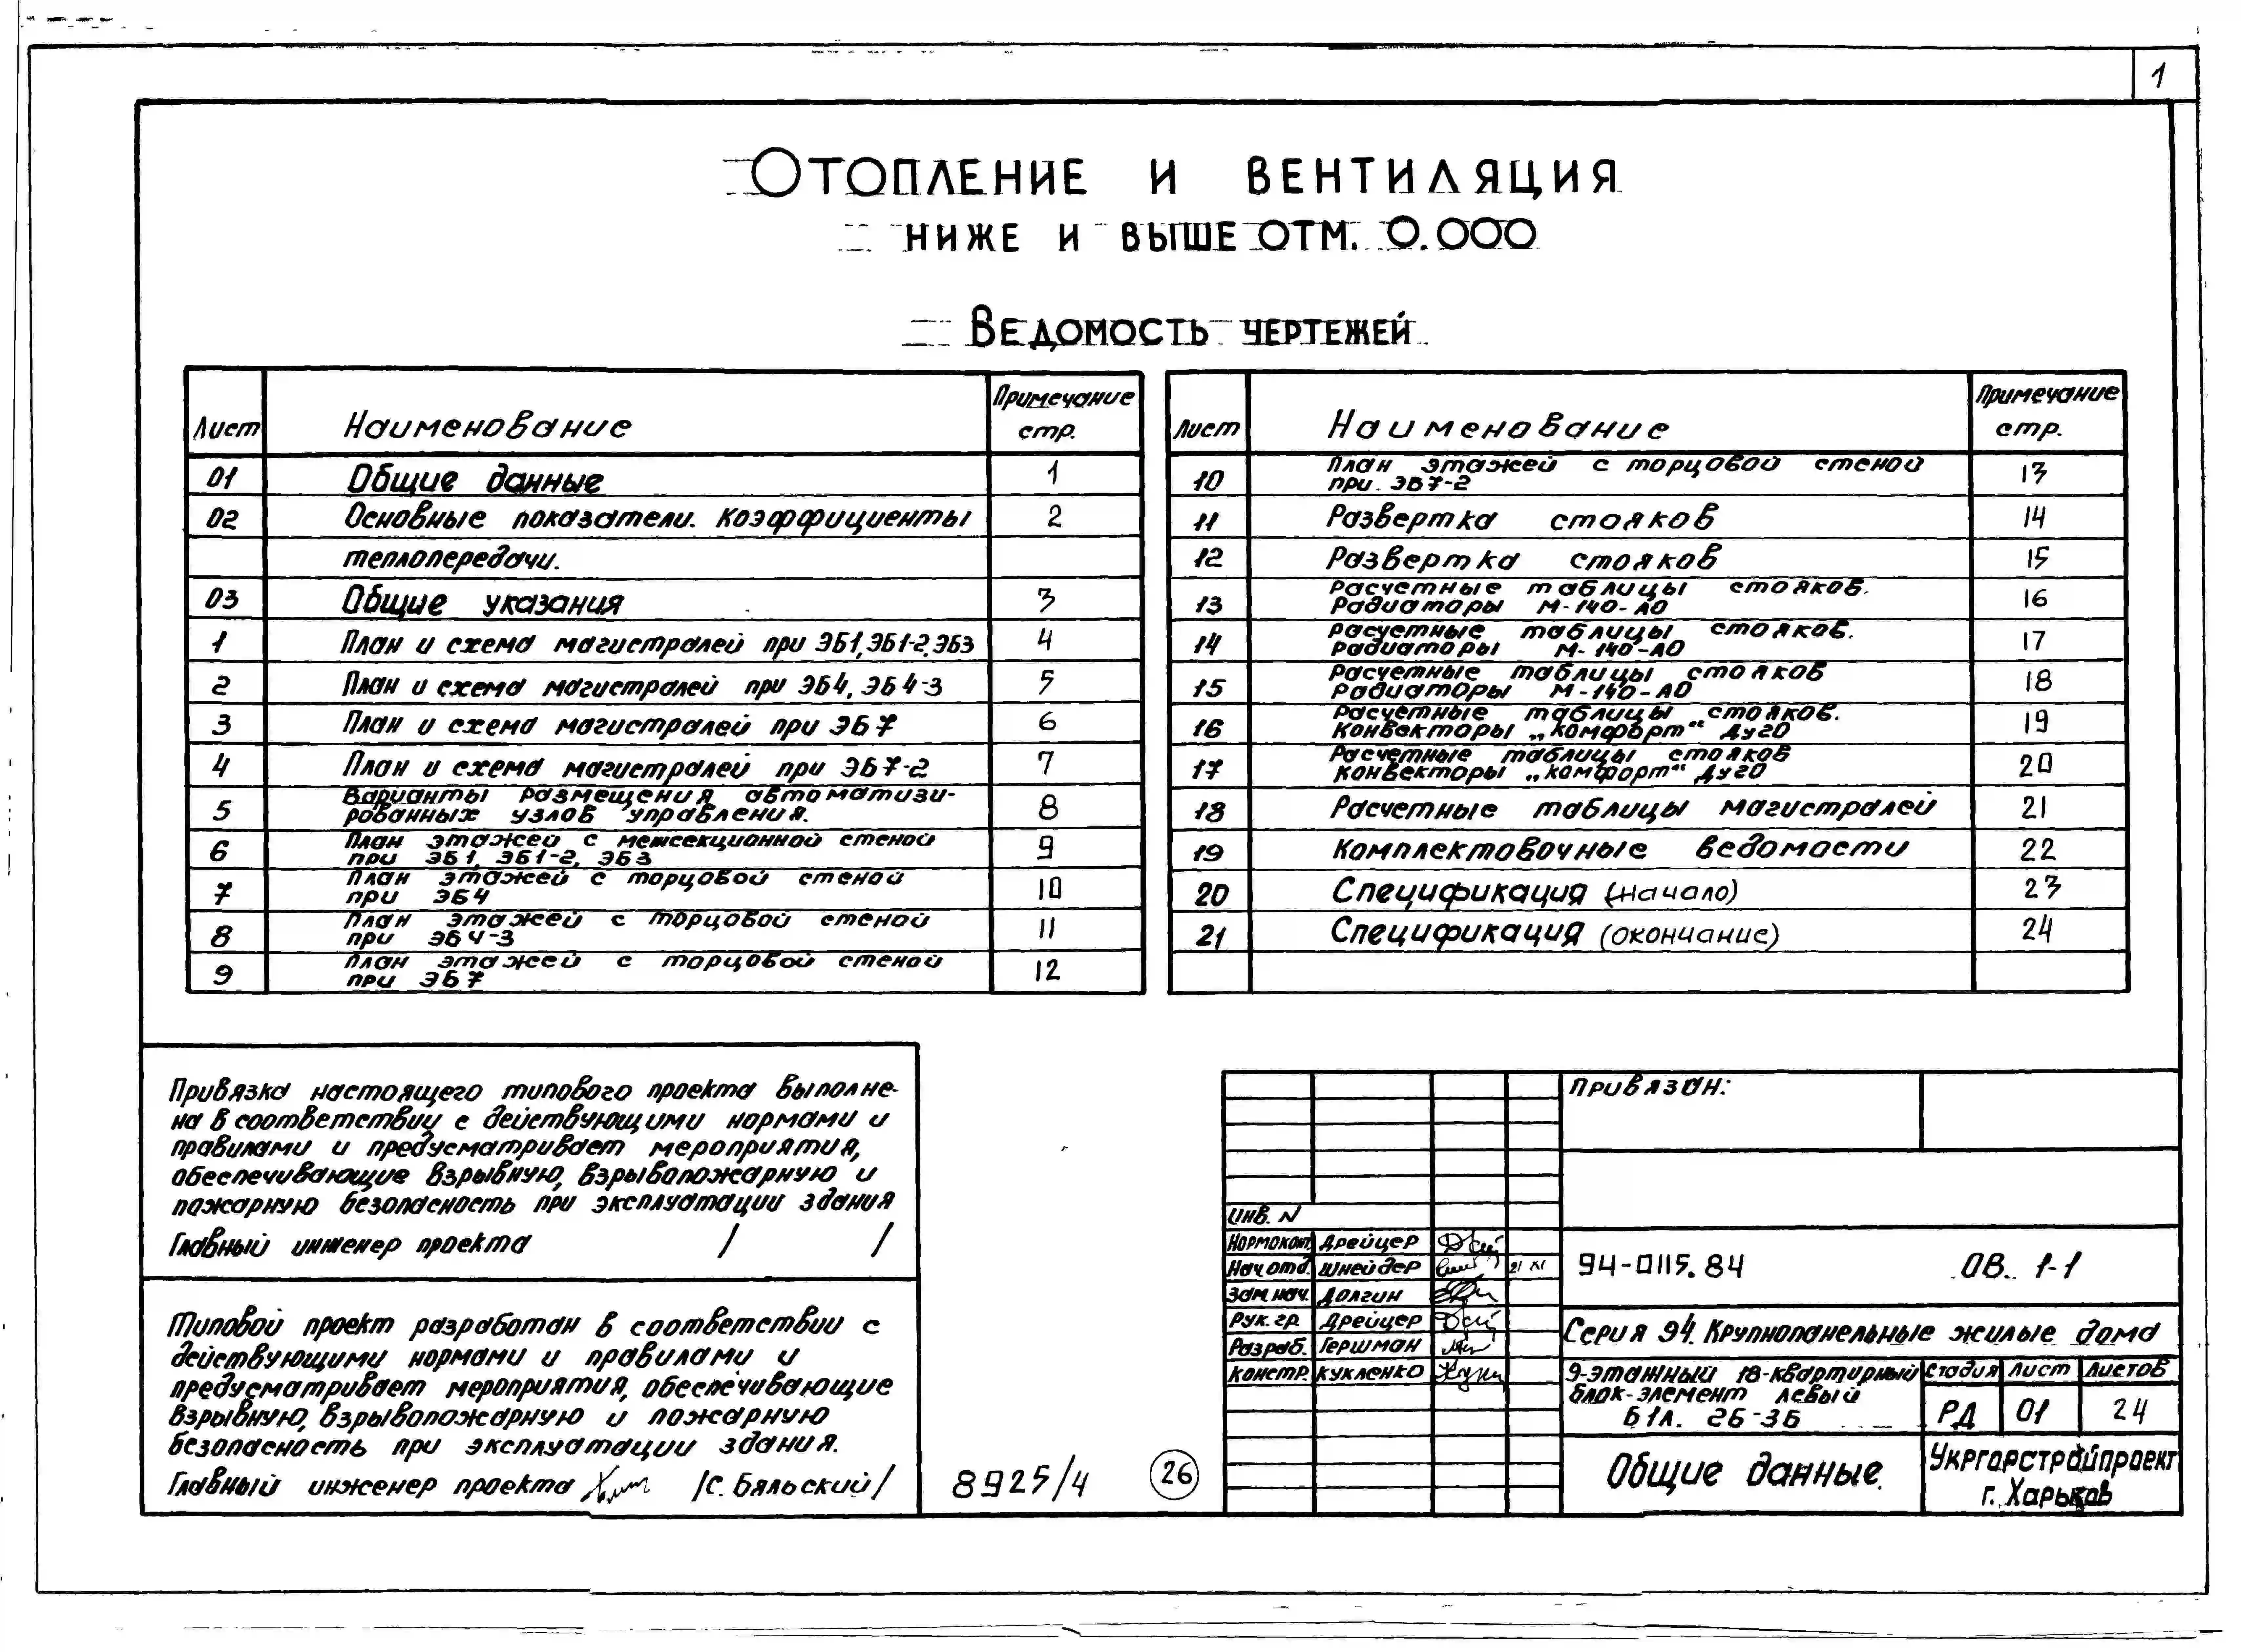 1
Отопление и вентиляция
ниже и выше отм. 0.000
Ведомость чертежей
Лист Наименование Примечание стр.
01 Общие данные 1
02 Основные показатели. Коэффициенты 2
теплопередачи.
03 Общие указания 3
1 План и схема магистралей при ЭБ1, ЭБ1-2, ЭБ3 4
2 План и схема магистралей при ЭБ4, ЭБ4-3 5
3 План и схема магистралей при ЭБ7 6
4 План и схема магистралей при ЭБ7-2 7
5 Варианты размещения автоматизи-
рованных узлов управления. 8
6 План этажей с межсекционной стеной
при ЭБ1, ЭБ1-2, ЭБ3 9
7 План этажей с торцовой стеной
при ЭБ4 10
8 План этажей с торцовой стеной
при ЭБ4-3 11
9 План этажей с торцовой стеной
при ЭБ7 12
Лист Наименование Примечание стр.
10 План этажей с торцовой стеной
при ЭБ7-2 13
11 Развертка стояков 14
12 Развертка стояков 15
13 Расчетные таблицы стояков.
Радиаторы М-140-АО 16
14 Расчетные таблицы стояков.
Радиаторы М-140-АО 17
15 Расчетные таблицы стояков
Радиаторы М-140-АО 18
16 Расчетные таблицы стояков.
Конвекторы „Комфорт“ Ду20 19
17 Расчетные таблицы стояков
Конвекторы „Комфорт“ Ду20 20
18 Расчетные таблицы магистралей 21
19 Комплектовочные ведомости 22
20 Спецификация (начало) 23
21 Спецификация (окончание) 24
Привязка настоящего типового проекта выполне-
на в соответствии с действующими нормами и
правилами и предусматривает мероприятия,
обеспечивающие взрывную, взрывопожарную и
пожарную безопасность при эксплуатации здания
Главный инженер проекта / /
Типовой проект разработан в соответствии с
действующими нормами и правилами и
предусматривает мероприятия, обеспечивающие
взрывную, взрывопожарную и пожарную
безопасность при эксплуатации здания.
Главный инженер проекта /С. Бяльский/
8925/4
26
Привязан:
Инв. N
Нормоконт. Дрейцер
Нач отд. Шнейдер 21 XI
Зам. нач. Долгин
Рук. гр. Дрейцер
Разраб. Гершман
Констр. Кукленко
94-0115.84 ОВ. 1-1
Серия 94. Крупнопанельные жилые дома
9-этажный 18-квартирный
блок-элемент левый
Б1Л. 2Б-3Б
Стадия Лист Листов
РД 01 24
Общие данные.
Укргорстройпроект
г. Харьков